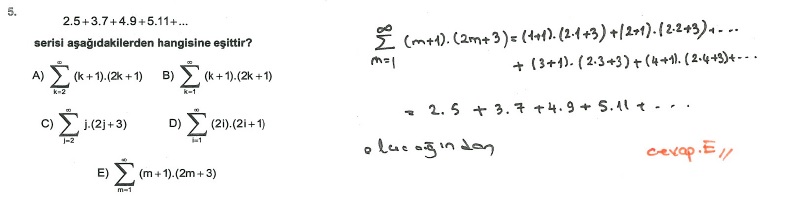 5.
2.5+3.7+4.9+5.11+...
serisi aşağıdakilerden hangisine eşittir?
A) ∑_{k=2}^{∞} (k+1).(2k+1) B) ∑_{k=1}^{∞} (k+1).(2k+1)
C) ∑_{j=2}^{∞} j.(2j+3) D) ∑_{i=1}^{∞} (2i).(2i+1)
E) ∑_{m=1}^{∞} (m+1).(2m+3)
∑_{m=1}^{∞} (m+1).(2m+3) = (1+1).(2.1+3)+(2+1).(2.2+3)+...
+ (3+1).(2.3+3)+(4+1).(2.4+3)+...
= 2.5 + 3.7+4.9+5.11+...
olacağından
cevap.E//